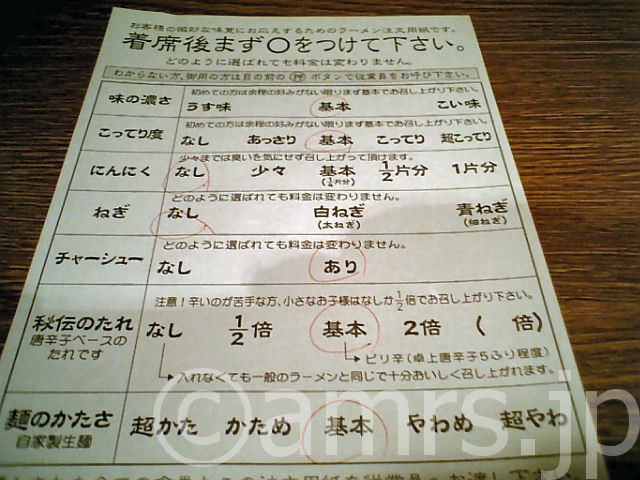 お客様の微妙な味覚にお応えするためのラーメン注文用紙です。
着席後まず○をつけて下さい。
どのように選ばれても料金は変わりません。
わからない方、御用の方は目の前の㊞ボタンで従業員をお呼び下さい。
味の濃さ
初めての方は余程の好みがない限りまず基本でお召し上がり下さい。
うす味 基本 こい味
こってり度
初めての方は余程の好みがない限りまず基本でお召し上がり下さい。
なし あっさり 基本 こってり 超こってり
にんにく
少々までは臭いを気にせず召し上がって頂けます。
なし 少々 基本 1/2片分 1片分
(1/4片分)
ねぎ
どのように選ばれても料金は変わりません。
なし 白ねぎ 青ねぎ
(太ねぎ) (細ねぎ)
チャーシュー
どのように選ばれても料金は変わりません。
なし あり
秘伝のたれ
唐辛子ベースの
たれです
注意!辛いのが苦手な方、小さなお子様はなしか1/2倍でお召し上がり下さい。
なし 1/2倍 基本 2倍 ( 倍)
ピリ辛(卓上唐辛子5ふり程度)
入れなくても一般のラーメンと同じで十分おいしく召し上がれます。
麺のかたさ
自家製生麺
超かた かため 基本 やわめ 超やわ
©amrs.jp